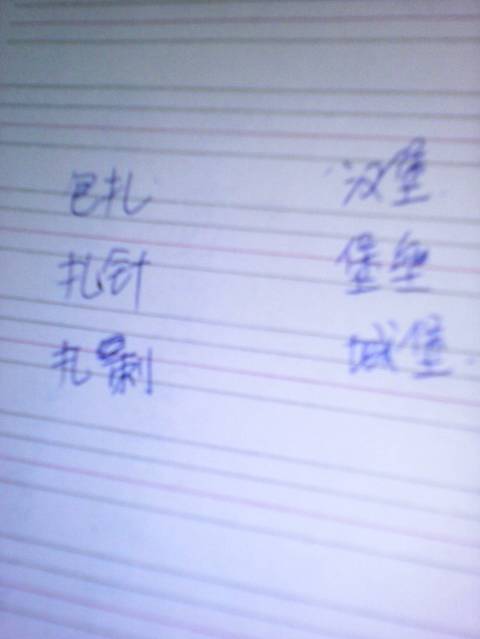 包扎 汉堡
扎针 堡垒
扎刺 城堡